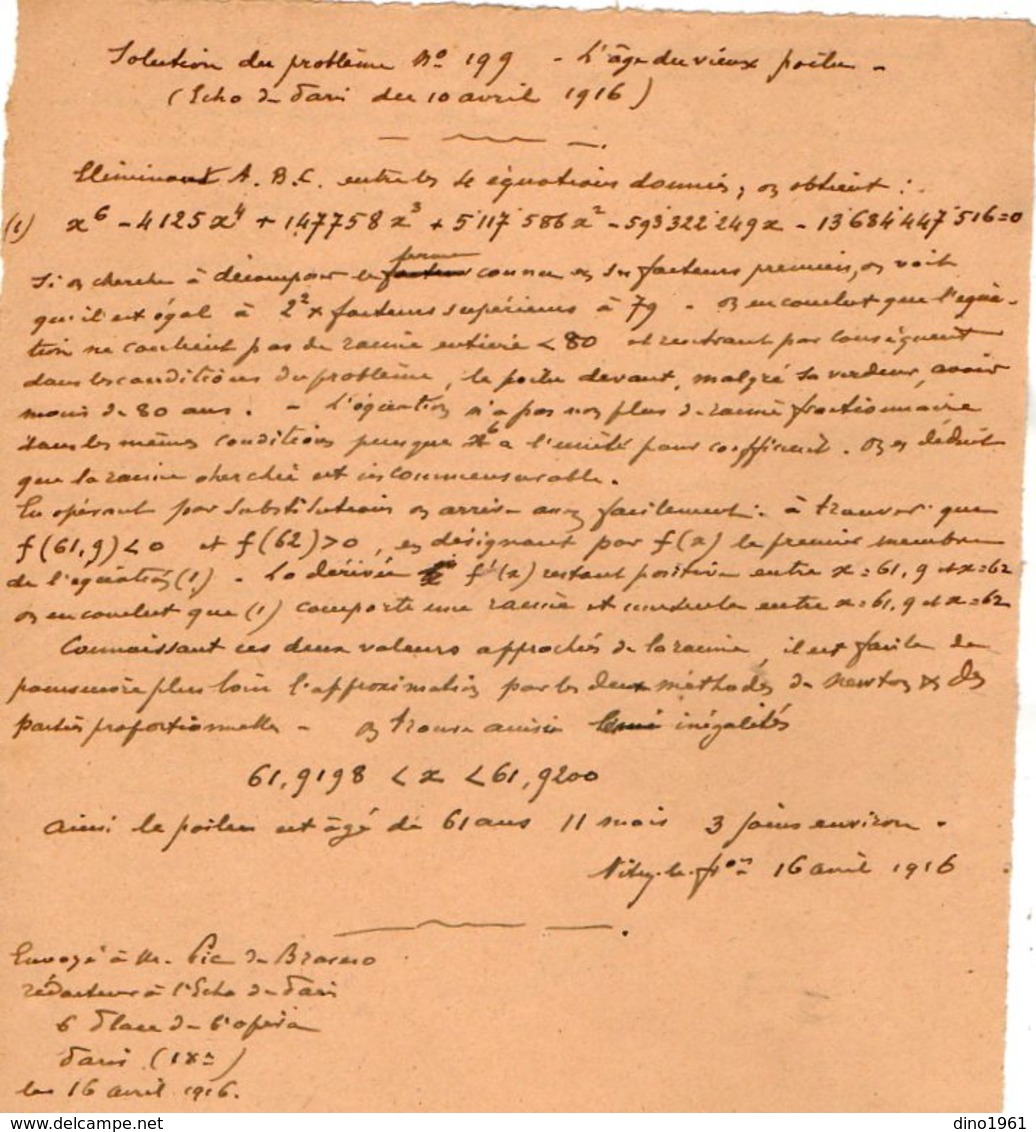 Solution du problème No 199 - L'âge du vieux poilu -
(Echo de Paris du 10 avril 1916)
Eliminant A. B. C. entre les 4 équations données, on obtient :
(1) x⁶ - 4125x⁴ + 147758x³ + 5117586x² - 593322249x - 13684447516=0
Si on cherche à décomposer le terme connu en ses facteurs premiers, on voit
qu'il est égal à 2² x facteurs supérieurs à 79 - on en conclut que l'équa-
tion ne contient pas de racine entière < 80 et rentrant par conséquent
dans les conditions du problème, le poilu devant, malgré sa verdeur, avoir
moins de 80 ans. - L'équation n'a pas non plus de racine fractionnaire
dans les mêmes conditions puisque x⁶ a l'unité pour coefficient. On en déduit
que la racine cherchée est incommensurable.
En opérant par substitutions on arrive assez facilement à trouver que
f(61,9)<0 et f(62)>0, en désignant par f(x) le premier membre
de l'équation (1). La dérivée f'(x) restant positive entre x=61,9 et x=62
on en conclut que (1) comporte une racine et une seule entre x=61,9 et x=62
Connaissant ces deux valeurs approchées de la racine, il est facile de
poursuivre plus loin l'approximation par les deux méthodes de Newton & des
parties proportionnelles - on trouve ainsi inégalités
61,9198 < x < 61,9200
Ainsi le poilu est âgé de 61 ans 11 mois 3 jours environ.
Vitry-le-Fçois 16 avril 1916
Envoyé à M. Pic de
rédacteur à l'Echo de Paris
6 Place de l'opéra
Paris (IXe)
le 16 avril 1916.
dino1961